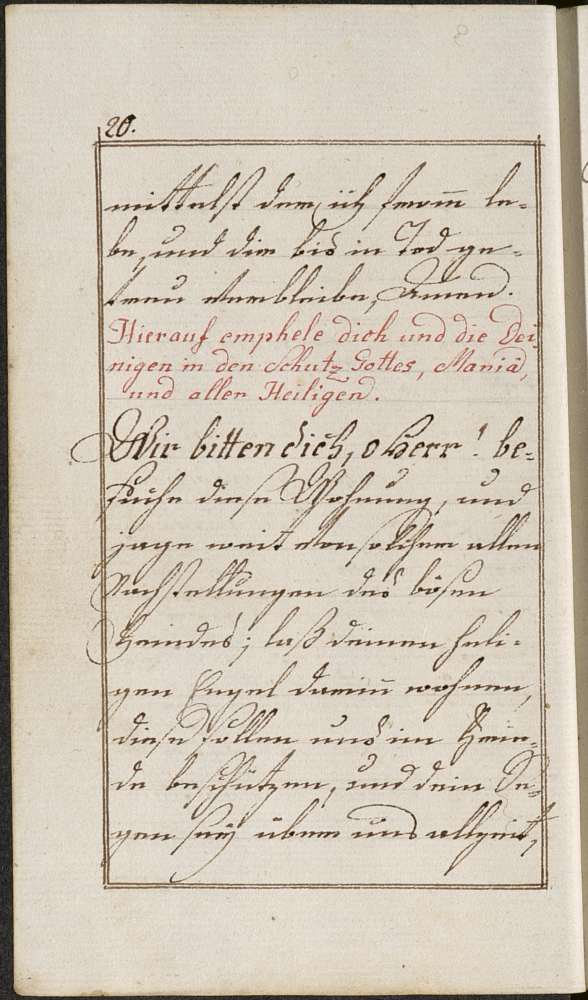 20.
mittelst dem ich from le-
be, und dir bis in Tod ge-
treu verbleibe, Amen.
Hierauf emphele dich und die Dei
nigen in den Schutz Gottes, Mariä,
und aller Heiligen.
Wir bitten dich, o Herr! be-
suche diese Wohnung, und
jage weit von solcher allen
Nachstellungen des bösen
Feindes; laß deinen heili-
gen Engel darinn wohnen,
diese sollen uns im
de beschützen, und dein Se-
gen seÿ über uns allzeit,